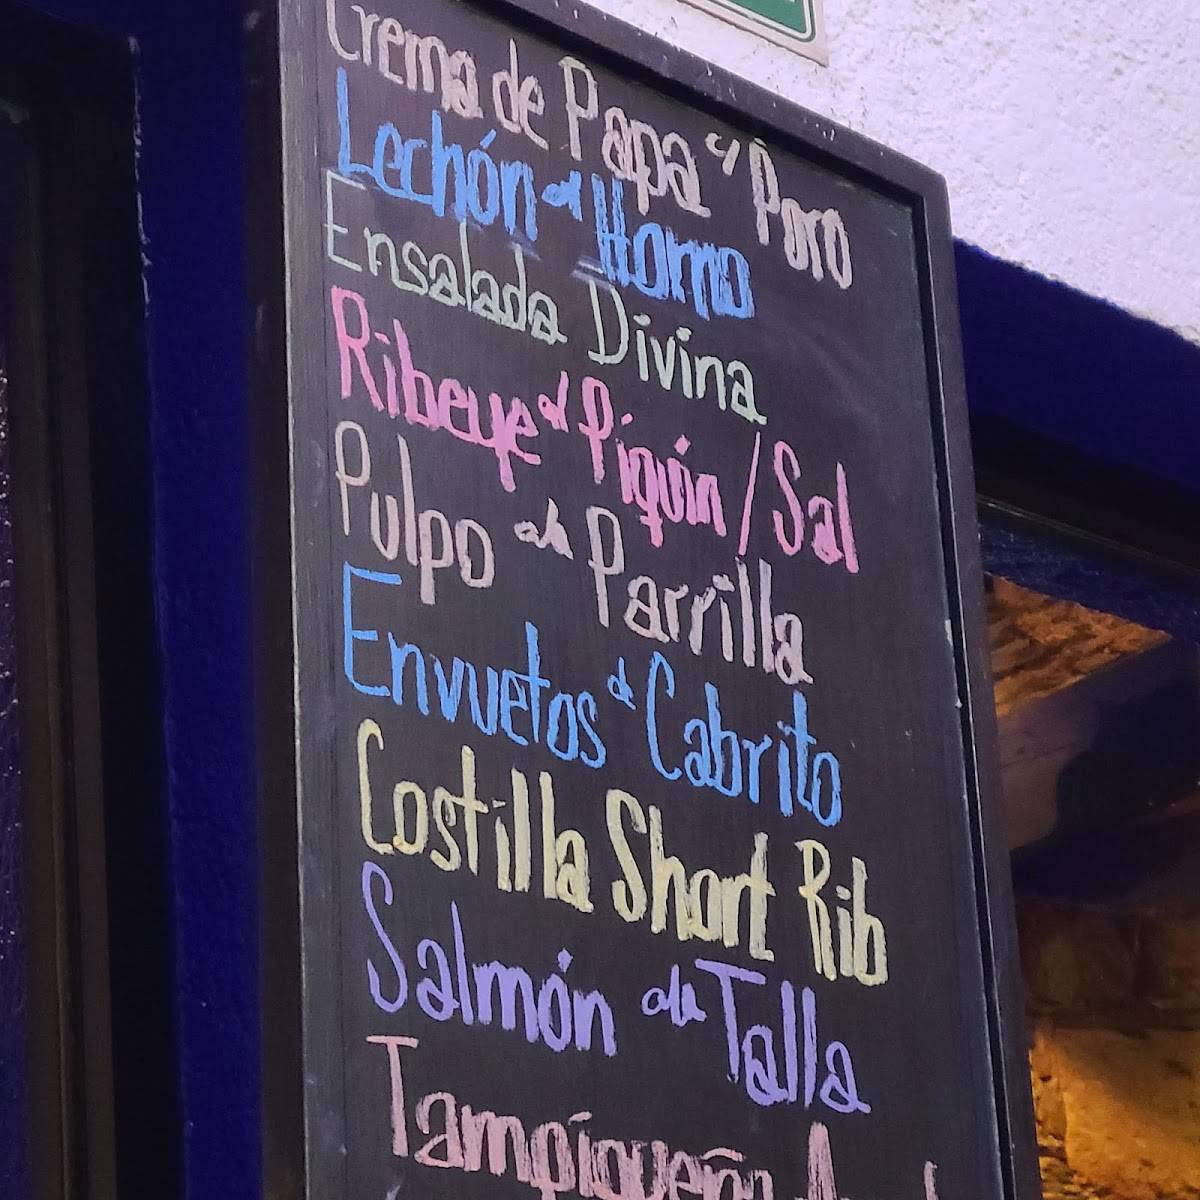 Crema de Papa y Poro
Lechón al Horno
Ensalada Divina
Ribeye al Piquín / Sal
Pulpo a la Parrilla
Envuetos de Cabrito
Costilla Short Rib
Salmón a la Talla
Tampiqueña